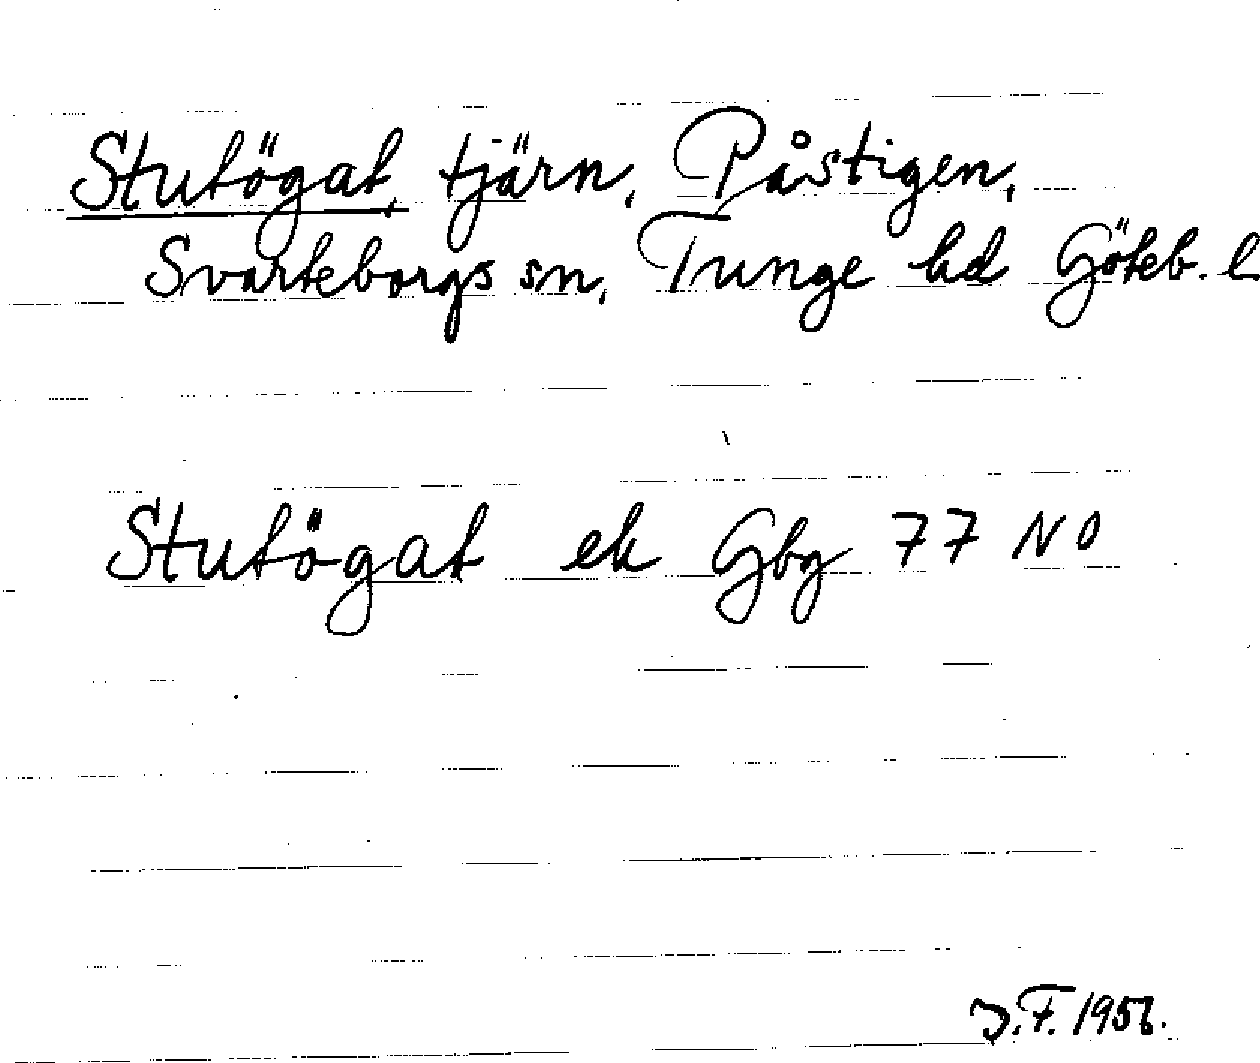 Stutögat, tjärn, Påstigen,
Svarteborgs sn, Tunge hd Göteb. l
Stutögat ek Gbg 77 NO
J.F. 1956.